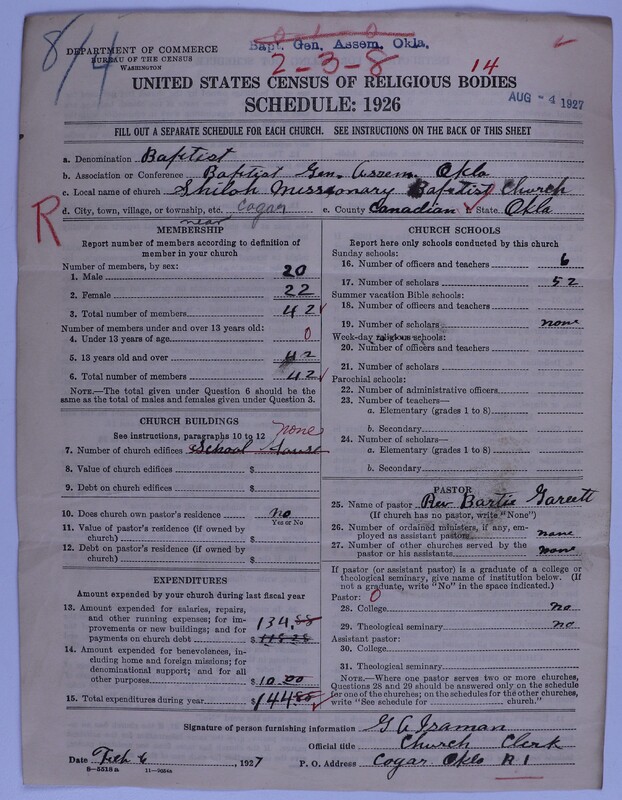 8/4
Bapt. Gen. Assem. Okla.
DEPARTMENT OF COMMERCE
BUREAU OF THE CENSUS
WASHINGTON
2-3-8
14
UNITED STATES CENSUS OF RELIGIOUS BODIES
SCHEDULE: 1926
AUG - 4 1927
FILL OUT A SEPARATE SCHEDULE FOR EACH CHURCH. SEE INSTRUCTIONS ON THE BACK OF THIS SHEET
a. Denomination Baptist
b. Association or Conference Baptist Gen. Assem. Okla
c. Local name of church Shiloh Missionary Baptist Church
d. City, town, village, or township, etc. near Cogar e. County Canadian State Okla
R
MEMBERSHIP
Report number of members according to definition of
member in your church
Number of members, by sex:
1. Male 20
2. Female 22
3. Total number of members 42
Number of members under and over 13 years old:
4. Under 13 years of age 0
5. 13 years old and over 42
6. Total number of members 42
NOTE.—The total given under Question 6 should be the
same as the total of males and females given under Question 3.
CHURCH BUILDINGS
See instructions, paragraphs 10 to 12
none
7. Number of church edifices School House
8. Value of church edifices $
9. Debt on church edifices $
10. Does church own pastor's residence No
Yes or No
11. Value of pastor's residence (if owned by
church) $
12. Debt on pastor's residence (if owned by
church) $
EXPENDITURES
Amount expended by your church during last fiscal year
13. Amount expended for salaries, repairs,
and other running expenses; for im-
provements or new buildings; and for
payments on church debt $ 134.88
14. Amount expended for benevolences,
including home and foreign missions; for
denominational support; and for all
other purposes $ 10.00
15. Total expenditures during year $ 144.88
CHURCH SCHOOLS
Report here only schools conducted by this church
Sunday schools:
16. Number of officers and teachers 6
17. Number of scholars 52
Summer vacation Bible schools:
18. Number of officers and teachers
19. Number of scholars none
Week-day religious schools:
20. Number of officers and teachers
21. Number of scholars
Parochial schools:
22. Number of administrative officers
23. Number of teachers—
a. Elementary (grades 1 to 8)
b. Secondary
24. Number of scholars—
a. Elementary (grades 1 to 8)
b. Secondary
PASTOR
25. Name of pastor Rev Bartie Garrett
(If church has no pastor, write "None")
26. Number of ordained ministers, if any, em-
ployed as assistant pastors none
27. Number of other churches served by the
pastor or his assistants none
If pastor (or assistant pastor) is a graduate of a college or
theological seminary, give name of institution below. (If
not a graduate, write "No" in the space indicated.)
Pastor: 0
28. College no
29. Theological seminary no
Assistant pastor:
30. College
31. Theological seminary
NOTE.—Where one pastor serves two or more churches,
Questions 28 and 29 should be answered only on the schedule
for one of the churches; on the schedules for the other churches,
write "See schedule for church."
Signature of person furnishing information G A Iraman
Official title Church Clerk
Date Feb 6, 1927 P. O. Address Cogar Okla R 1
8-5518 a